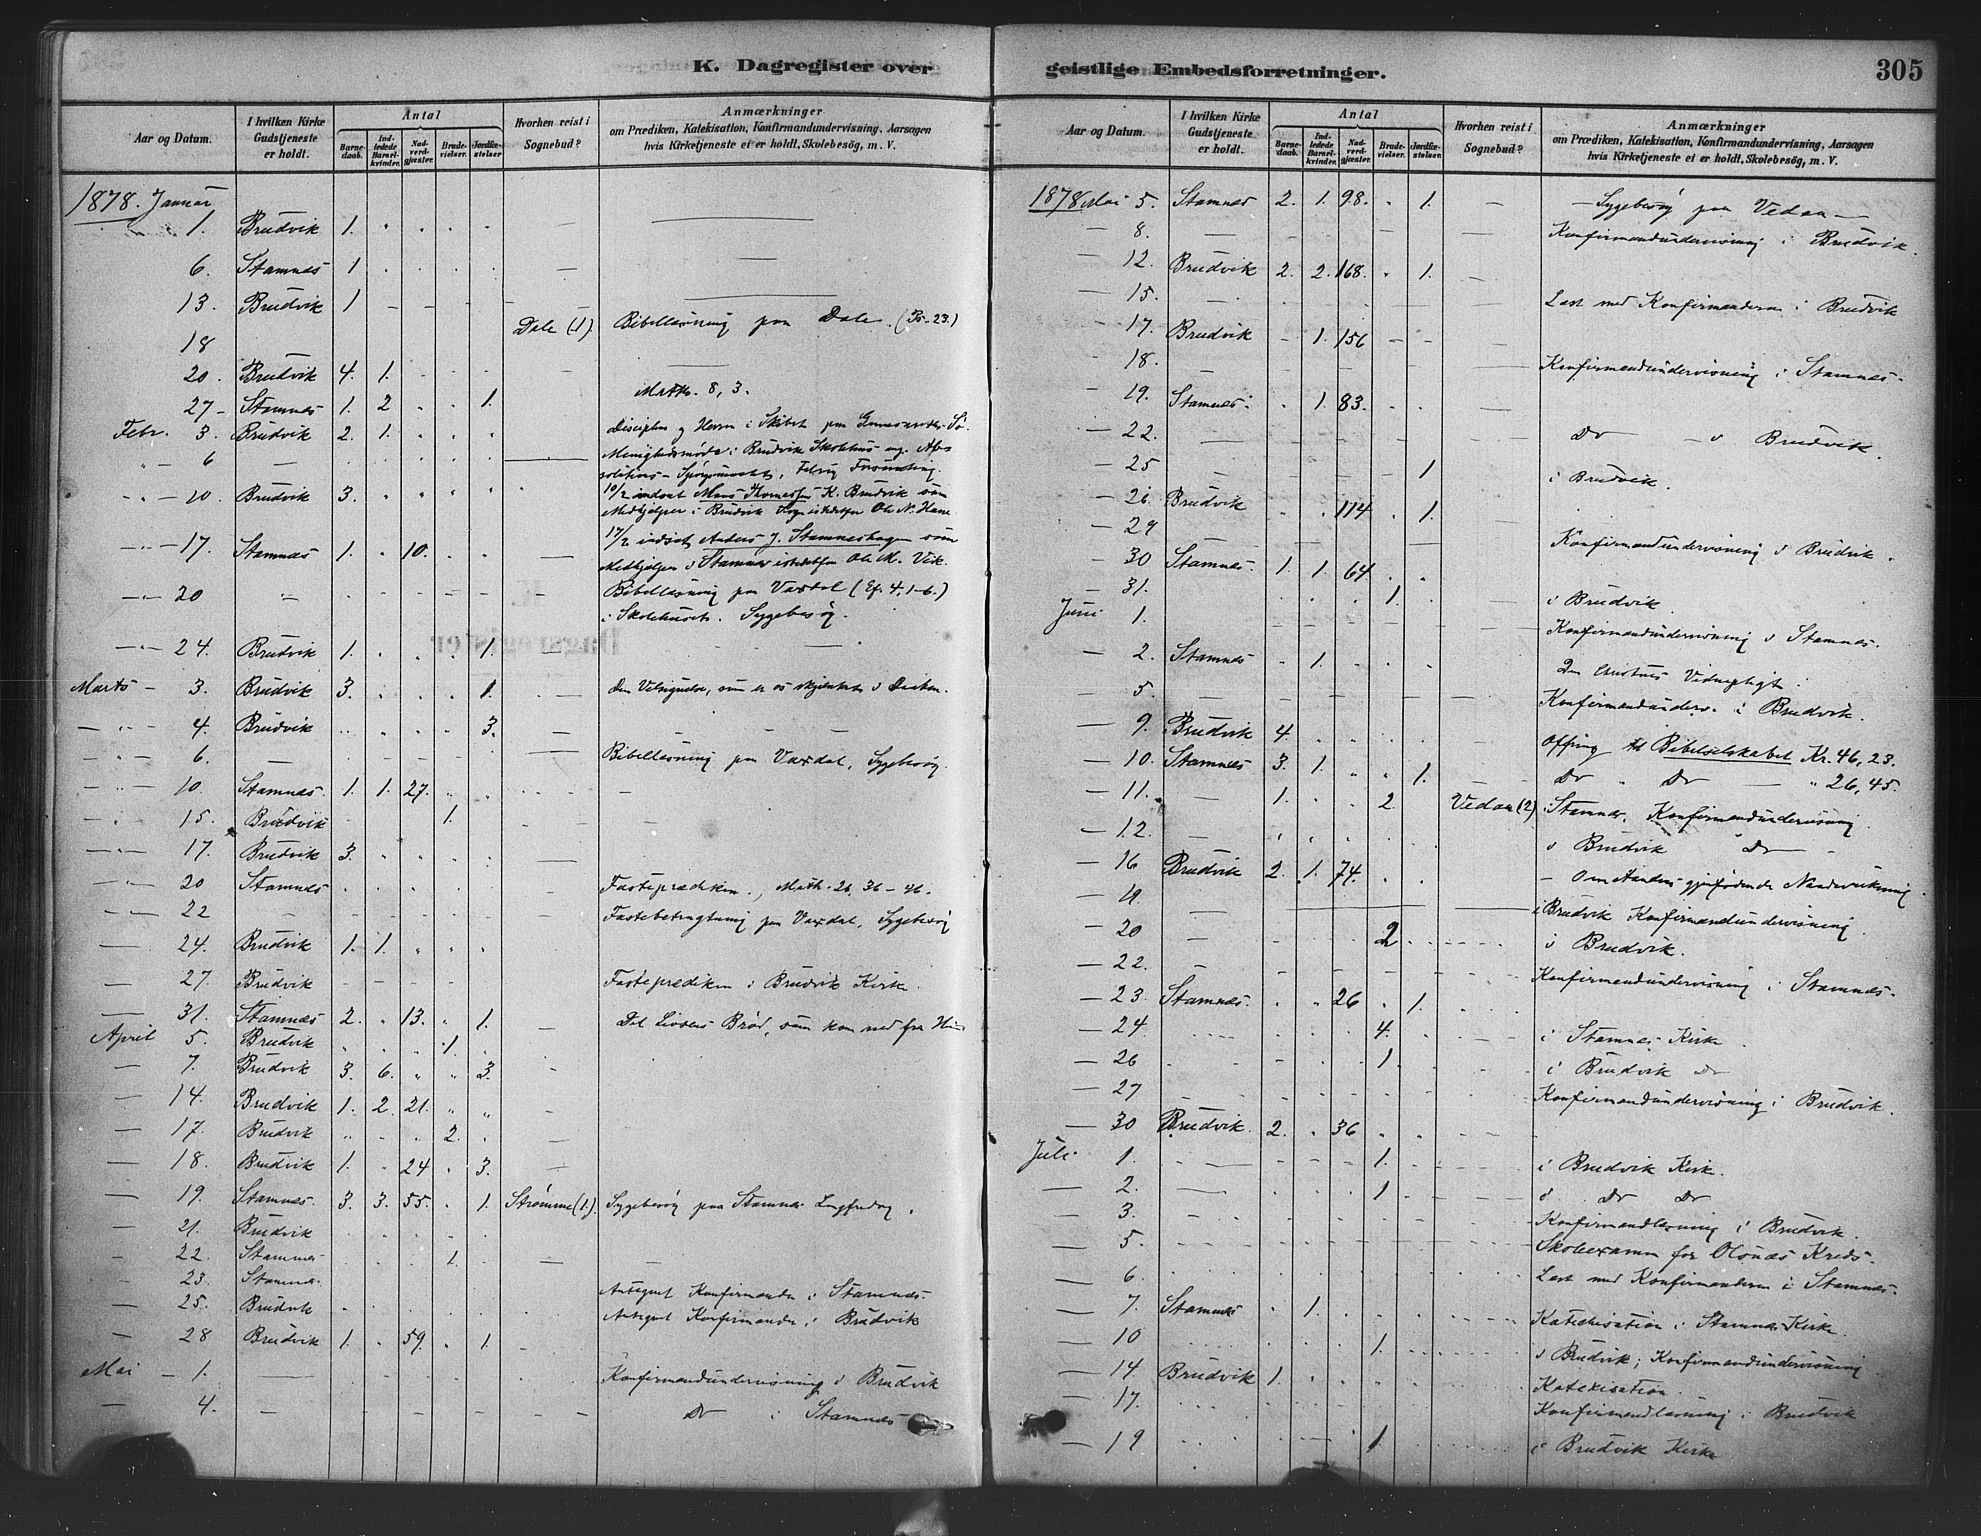 K. Dagregister over
Aar og Datum.
I hvilken Kirke Gudstjeneste er holdt.
Antal
Barnedaab.
Indledede Barselkvinder.
Nadverdgjester.
Brudevielser.
Jordfæstelser.
Hvorhen reist i Sognebud?
Anmærkninger
om Prædiken, Katekisation, Konfirmandundervisning, Aarsagen
hvis Kirketjeneste ei er holdt, Skolebesög, m. V.
1878. Januar
1. Brudvik 1.
6. Stamnæs 1
13. Brudvik 1
18 Dale (1). Bibellæsning paa Dale. (Ps. 23.)
20. Brudvik 4. 1.
27 - Stamnæs 1. 2 1. Matth. 8, 3.
Febr. 3. Brudvik 2. 1. Disciplene og Herren i Skibet paa
6 Menighedsmöde i Brudvik Skolehus
10 Brudvik 3. 10/2 indsat K. Brudvik som
Medhjælper i Brudvik Sogn istedetfor Ole N. Hane
17. Stamnæs 1. 10. 17/2 indsat Anders J. Stamneshagen som
Medhjælper i Stamnæs istedetfor Ole M. Vik.
20 Bibellæsning paa Vaxdal (Ef. 4, 1-6.)
i Skolehuset. Sygebesög.
24. Brudvik 1. 1.
Marts 3. Brudvik 3. 1. Den Velsignelse, som er os skjænket i Daaben.
4. Brudvik 3.
6. Bibellæsning paa Vaxdal, Sygebesög.
10. Stamnæs. 1. 1. 27.
15. Brudvik 1.
17. Brudvik 3.
20 Stamnæs Fasteprædiken., Math. 26, 36-46.
22 Fastebetragtning paa Vaxdal, Sygebesög
24. Brudvik 1. 1.
27. Brudvik Fasteprædiken i Brudvik Kirke.
31. Stamnæs 2. 13. 1. Det Livsens Bröd, som kom ned fra
April 5. Brudvik 1.
7. Brudvik 3. 6. 3.
14. Brudvik 1. 2. 21.
17. Brudvik 2.
18. Brudvik 1. 24 3.
19. Stamnæs. 3. 3. 55. 1. Strømme (1.) Sygebesög paa Stamnæs Langfredag.
21. Brudvik
22. Stamnæs 1.
23. Stamnæs Antegnet Konfirmander i Stamnæs.
25. Brudvik Antegnet Konfirmander i Brudvik
28 Brudvik 1. 59. 1.
Mai 1. Konfirmandundervisning i Brudvik
4. Do i Stamnæs
geistlige Embedsforretninger.
305
Aar og Datum.
I hvilken Kirke Gudstjeneste er holdt.
Antal
Barnedaab.
Indledede Barselkvinder.
Nadverdgjester.
Brudevielser.
Jordfæstelser.
Hvorhen reist i Sognebud?
Anmærkninger
om Prædiken, Katekisation, Konfirmandundervisning, Aarsagen
hvis Kirketjeneste ei er holdt, Skolebesög, m. V.
1878 Mai 5. Stamnæs 2. 1. 98. 1. Sygebesög paa Vedaa
8. Konfirmandundervisning i Brudvik.
12. Brudvik 2. 2. 168. 1.
15. Læst med Konfirmanderne i Brudvik
17. Brudvik 1. 156
18. Konfirmandundervisning i Stamnæs.
19. Stamnæs. 1. 83.
22. Do i Brudvik.
25 1 i Brudvik.
26. Brudvik 114 1.
29 Konfirmandundervisning i Brudvik.
30 Stamnæs. 1. 1. 64
31. 1. i Brudvik.
Juni 1. Konfirmandundervisning i Stamnæs.
2. Stamnæs 1.
5. Konfirmandunderv. i Brudvik.
9. Brudvik 4. Offring til Bibelselskabet Kr. 46,23.
10. Stamnæs 3. 1. 1. Do Do 26,45.
11. 1. 2. Vedaa (2) i Stamnæs, Konfirmandundervisning
12. i Brudvik Do
16 Brudvik 2. 1. 74. Om Aandens gjenfødende Naadevirkning
19. i Brudvik Konfirmandundervisning.
20 2 i Brudvik.
22. Konfirmandundervisning i Stamnæs.
23. Stamnæs. 26 1.
24 4. i Stamnæs Kirke
26 1. i Brudvik Do
27 Konfirmandundervisning i Brudvik.
30 Brudvik. 2. 36
Juli 1. 1. i Brudvik Kirk.
2. 1 i Do Do
3. Konfirmandlæsning i Brudvik.
5. Skoleexamen for Olsnæs Kreds.
6. Læst med Konfirmanderne i Stamnæs.
7. Stamnæs 1. Katechisation i Stamnæs Kirke.
10 1. i Brudvik; Konfirmandundervisning
14 Brudvik 1. Katekisation.
17. Konfirmandlæsning i Brudvik
19 1 i Brudvik Kirke